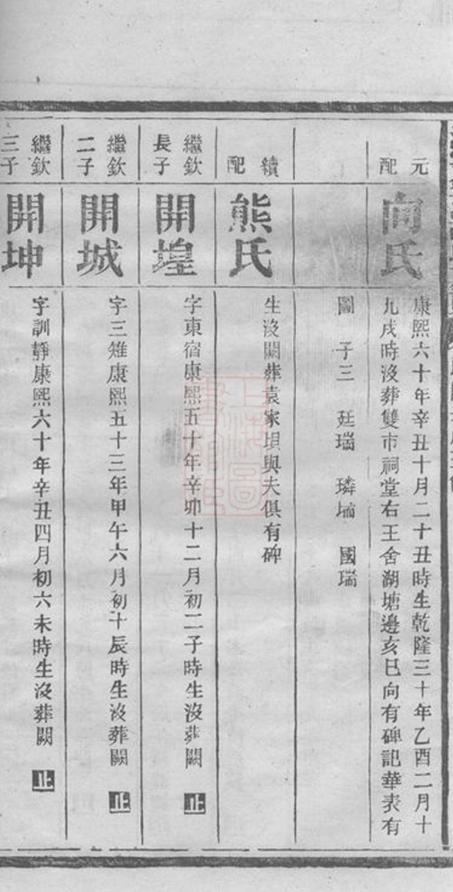 元配
向氏
康熙六十年辛丑十月二十丑時生乾隆三十年乙酉二月十
九戌時沒葬雙市祠堂右王舍湖塘邊亥巳向有碑記華表有
圖 子三 廷瑞 璘瑞 國瑞
續配
熊氏
生沒闕葬袁家垻與夫俱有碑
繼欽長子
開煌
字東宿康熙五十年辛卯十二月初二子時生沒葬闕 止
繼欽二子
開城
字三雉康熙五十三年甲午六月初十辰時生沒葬闕 止
繼欽三子
開坤
字訓靜康熙六十年辛丑四月初六未時生沒葬闕 止